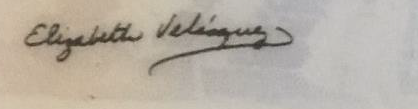 Elizabeth Velásquez